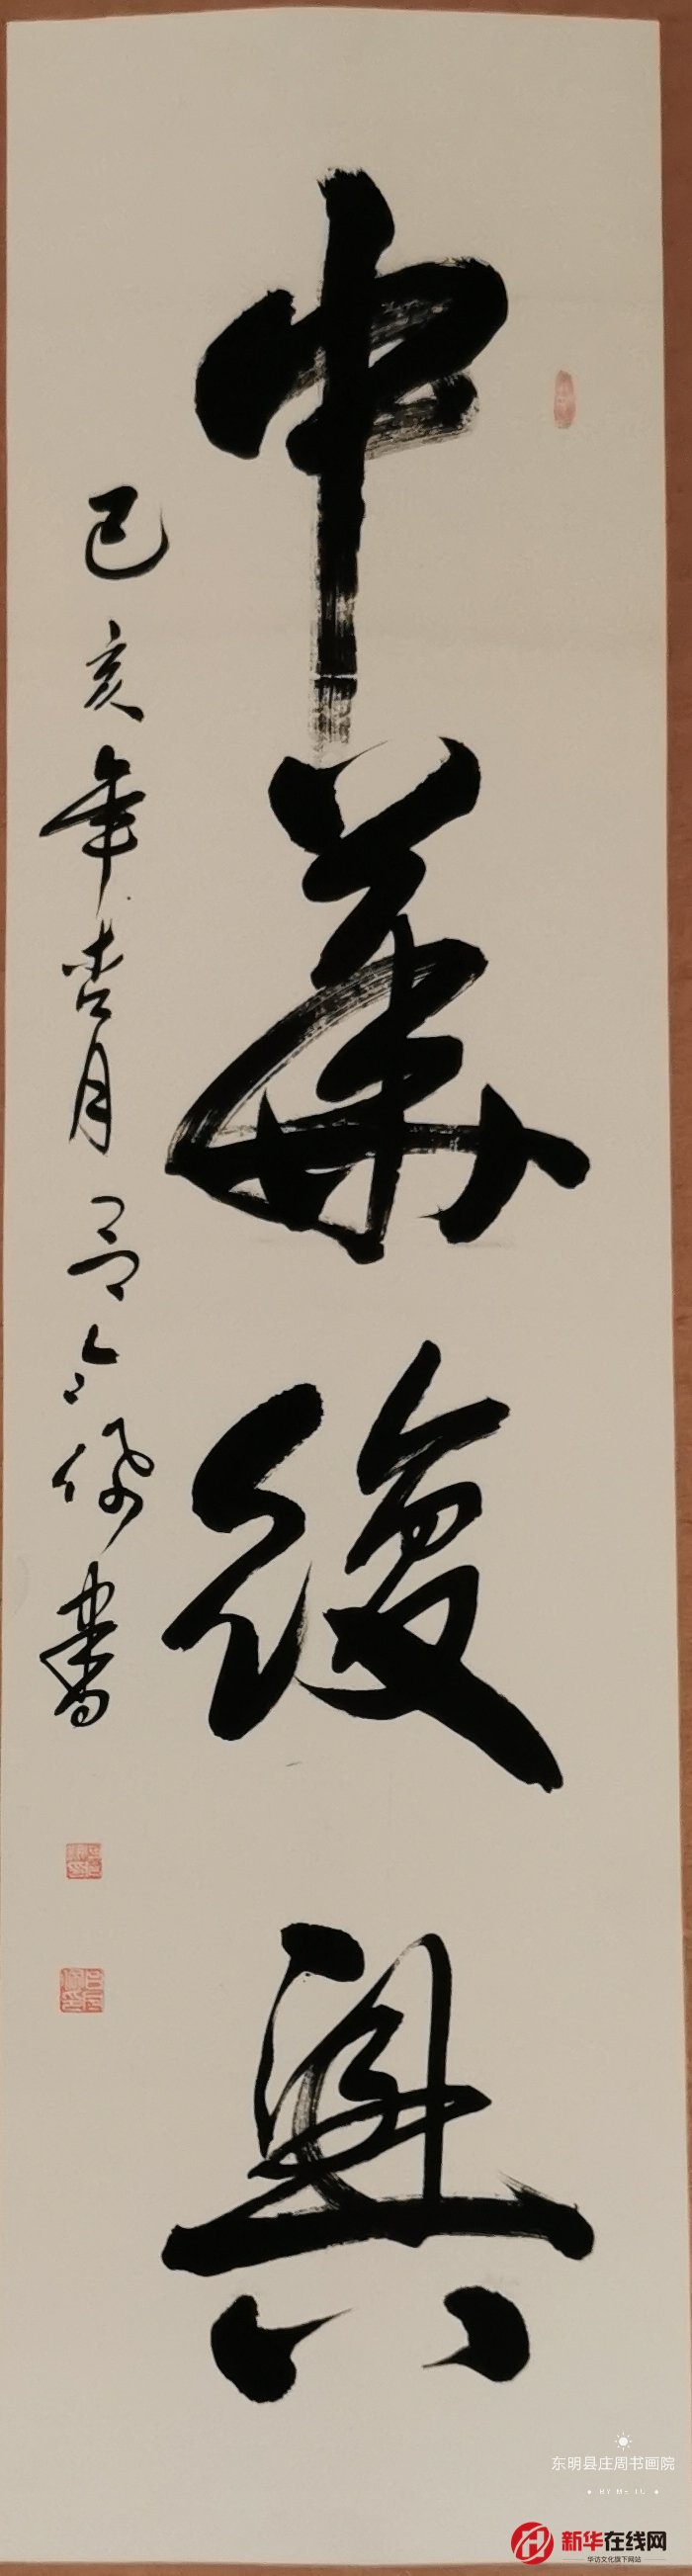 中華復興
己亥年杏月呂令保書
东明县庄周书画院
新华在线网
华访文化旗下网站